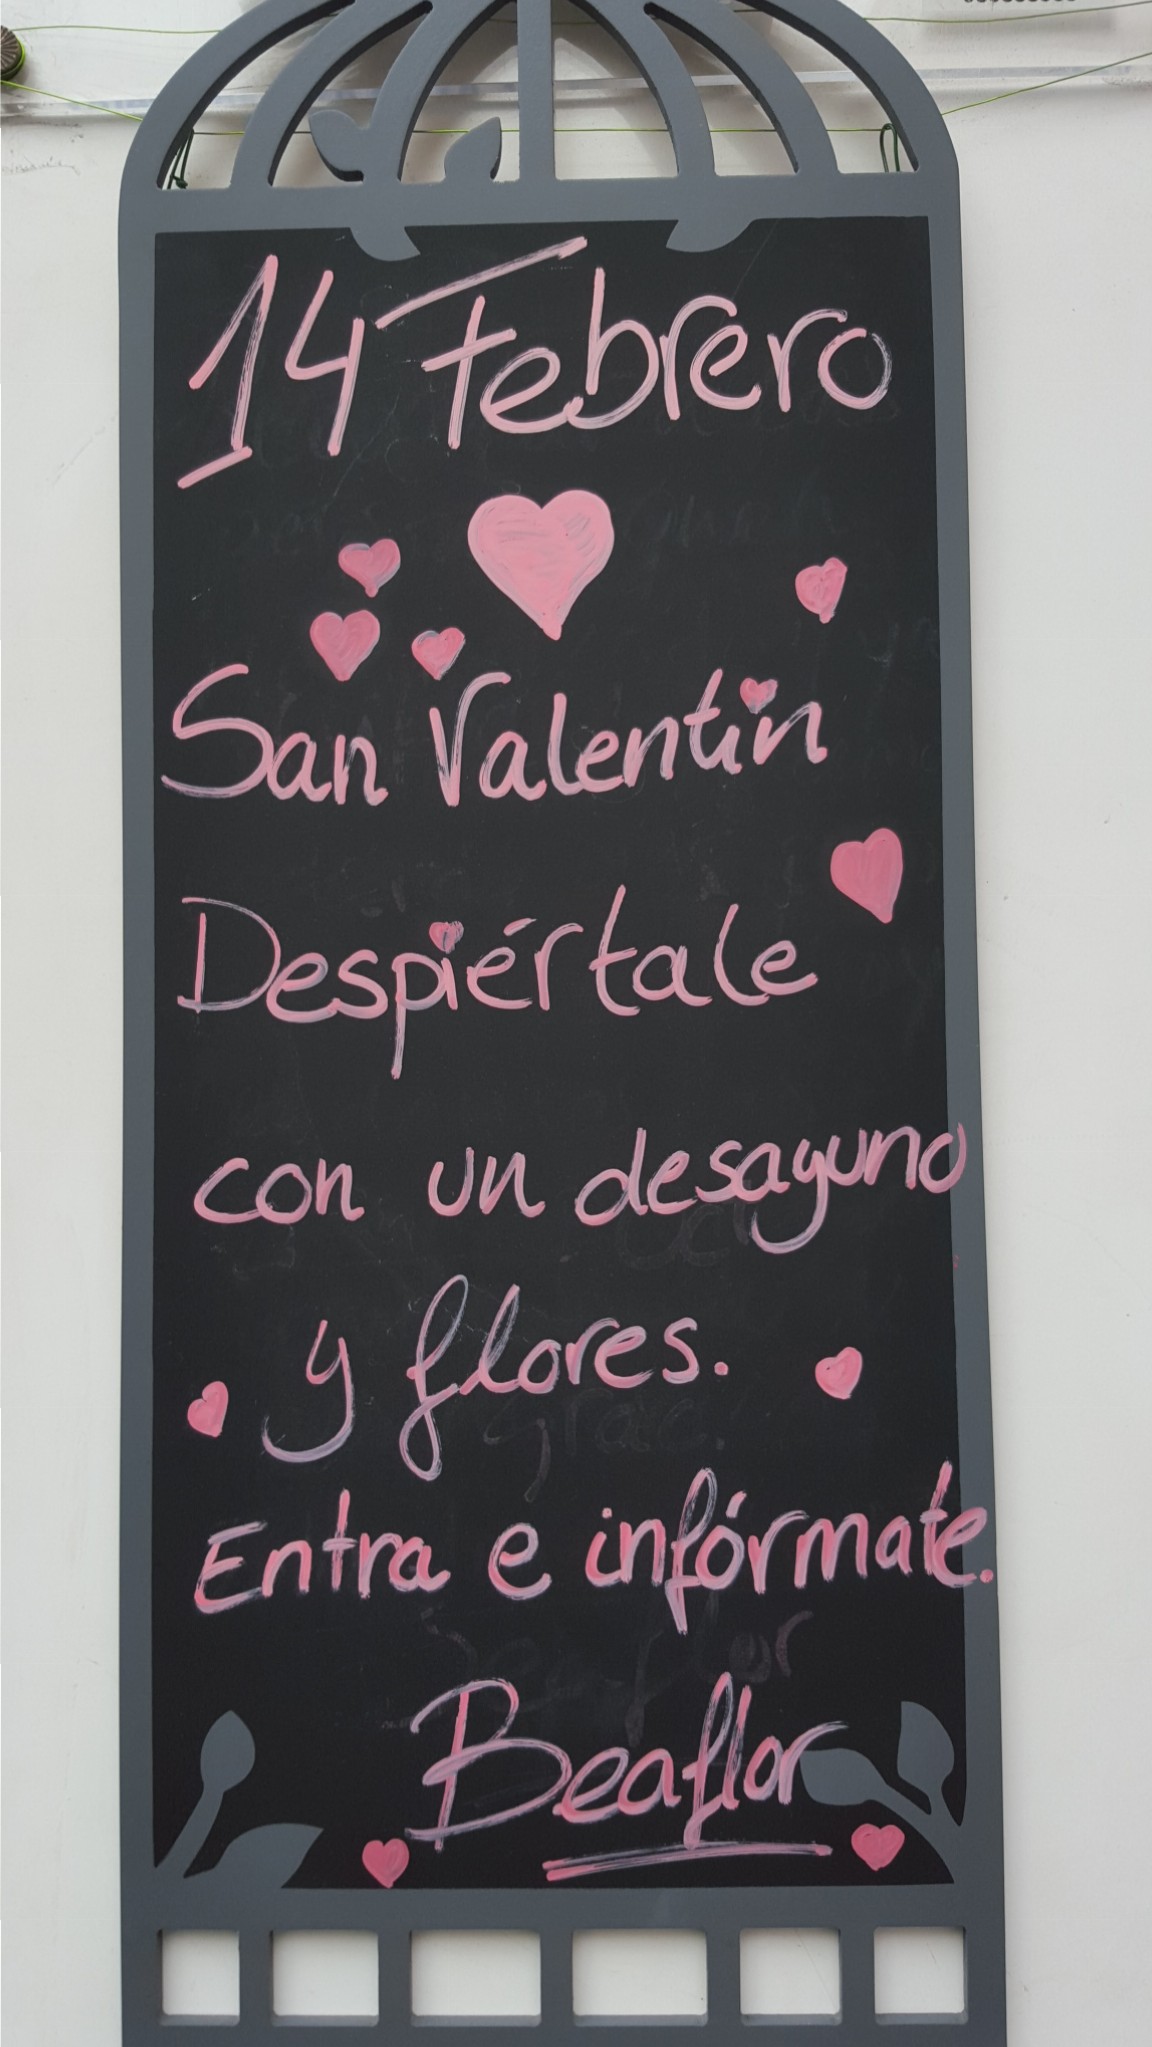 14 Febrero
San Valentin
Despiértale
con un desayuno
y flores.
Entra e infórmate.
Beaflor